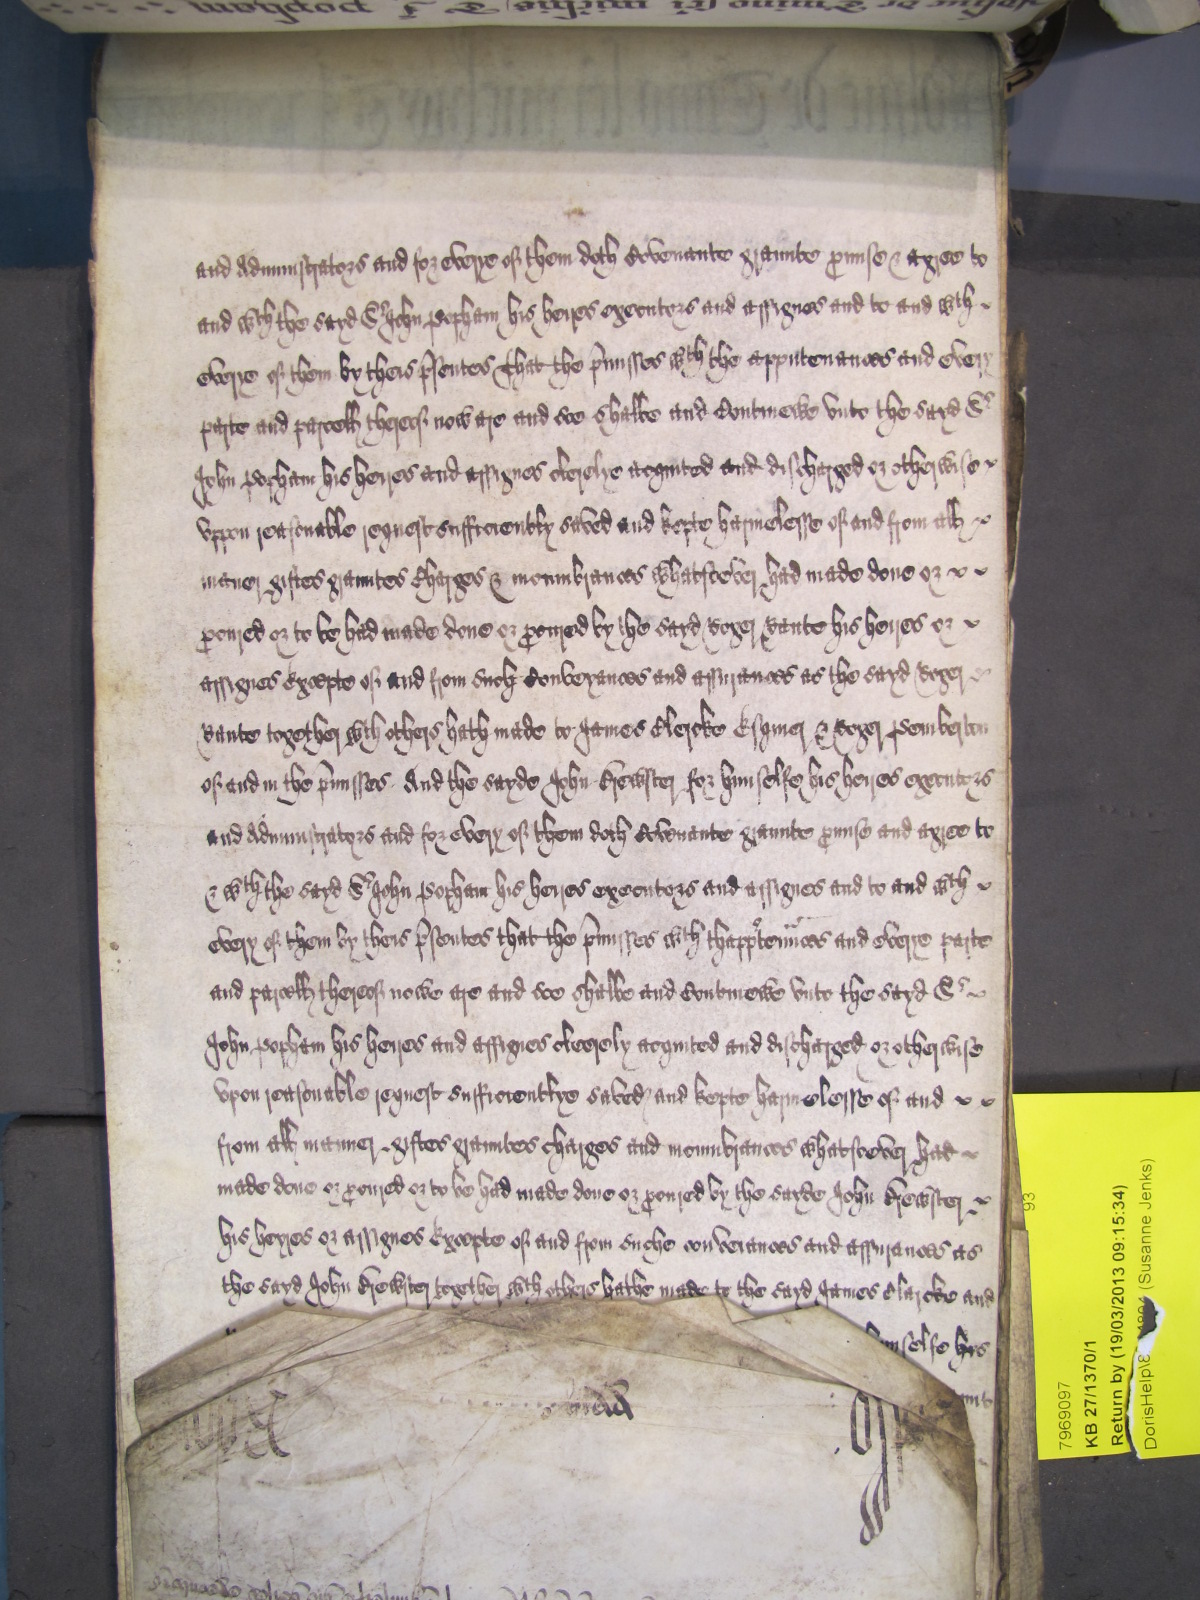 and Administrators and for everye of them doth Covenante graunte pmise & agree to
and wth the sayd Sr John Popham his heires executors and assignes and to and wth
everye of them by theis psentes That the pmisses wth the apprtenances and every
parte and parcell thereof now are and soe shalbe and Contineweke unto the sayd Sr
John Popham his heires and assignes clerelye acquited and discharged or otherwise
uppon reasonable request sufficiently saved and kepte harmelesse of and from all
maner giftes grauntes Charges & incumbrances whatsoever had made done or
pcured or to be had made done or pcured by the sayd Roger Vante his heires or
assignes Excepte of and from such Conveyances and assurances as the sayd Roger
Vante together wth others hath made to James Clercke Esquier & Roger Pemberton
of and in the pmisses And the sayde John Brewster for himselfe his heires executors
and Administrators and for every of them doth Covenante graunte pmise and agree to
& wth the sayd Sr John Popham his heires executors and assignes and to and wth
every of them by theis psentes that the pmisses wth thapprtennces and everye parte
and parcell thereof nowe are and soe shalbe and Contineweke unto the sayd Sr
John Popham his heires and assignes cleerely acquited and discharged or otherwise
upon reasonable request sufficientlye saved and kepte harmelesse of and
from all manner giftes grauntes charges and incumbrances whatsoever had
made done or pcured or to be had made done or pcured by the sayde John Brewster
his heires or assignes Excepte of and from suche conveiances and assurances as
the sayd John Brewster together wth others hathe made to the sayd James Clarcke and
himselfe his
7969097
KB 27/1370/1
Return by (19/03/2013 09:15:34)
(Susanne Jenks)
93